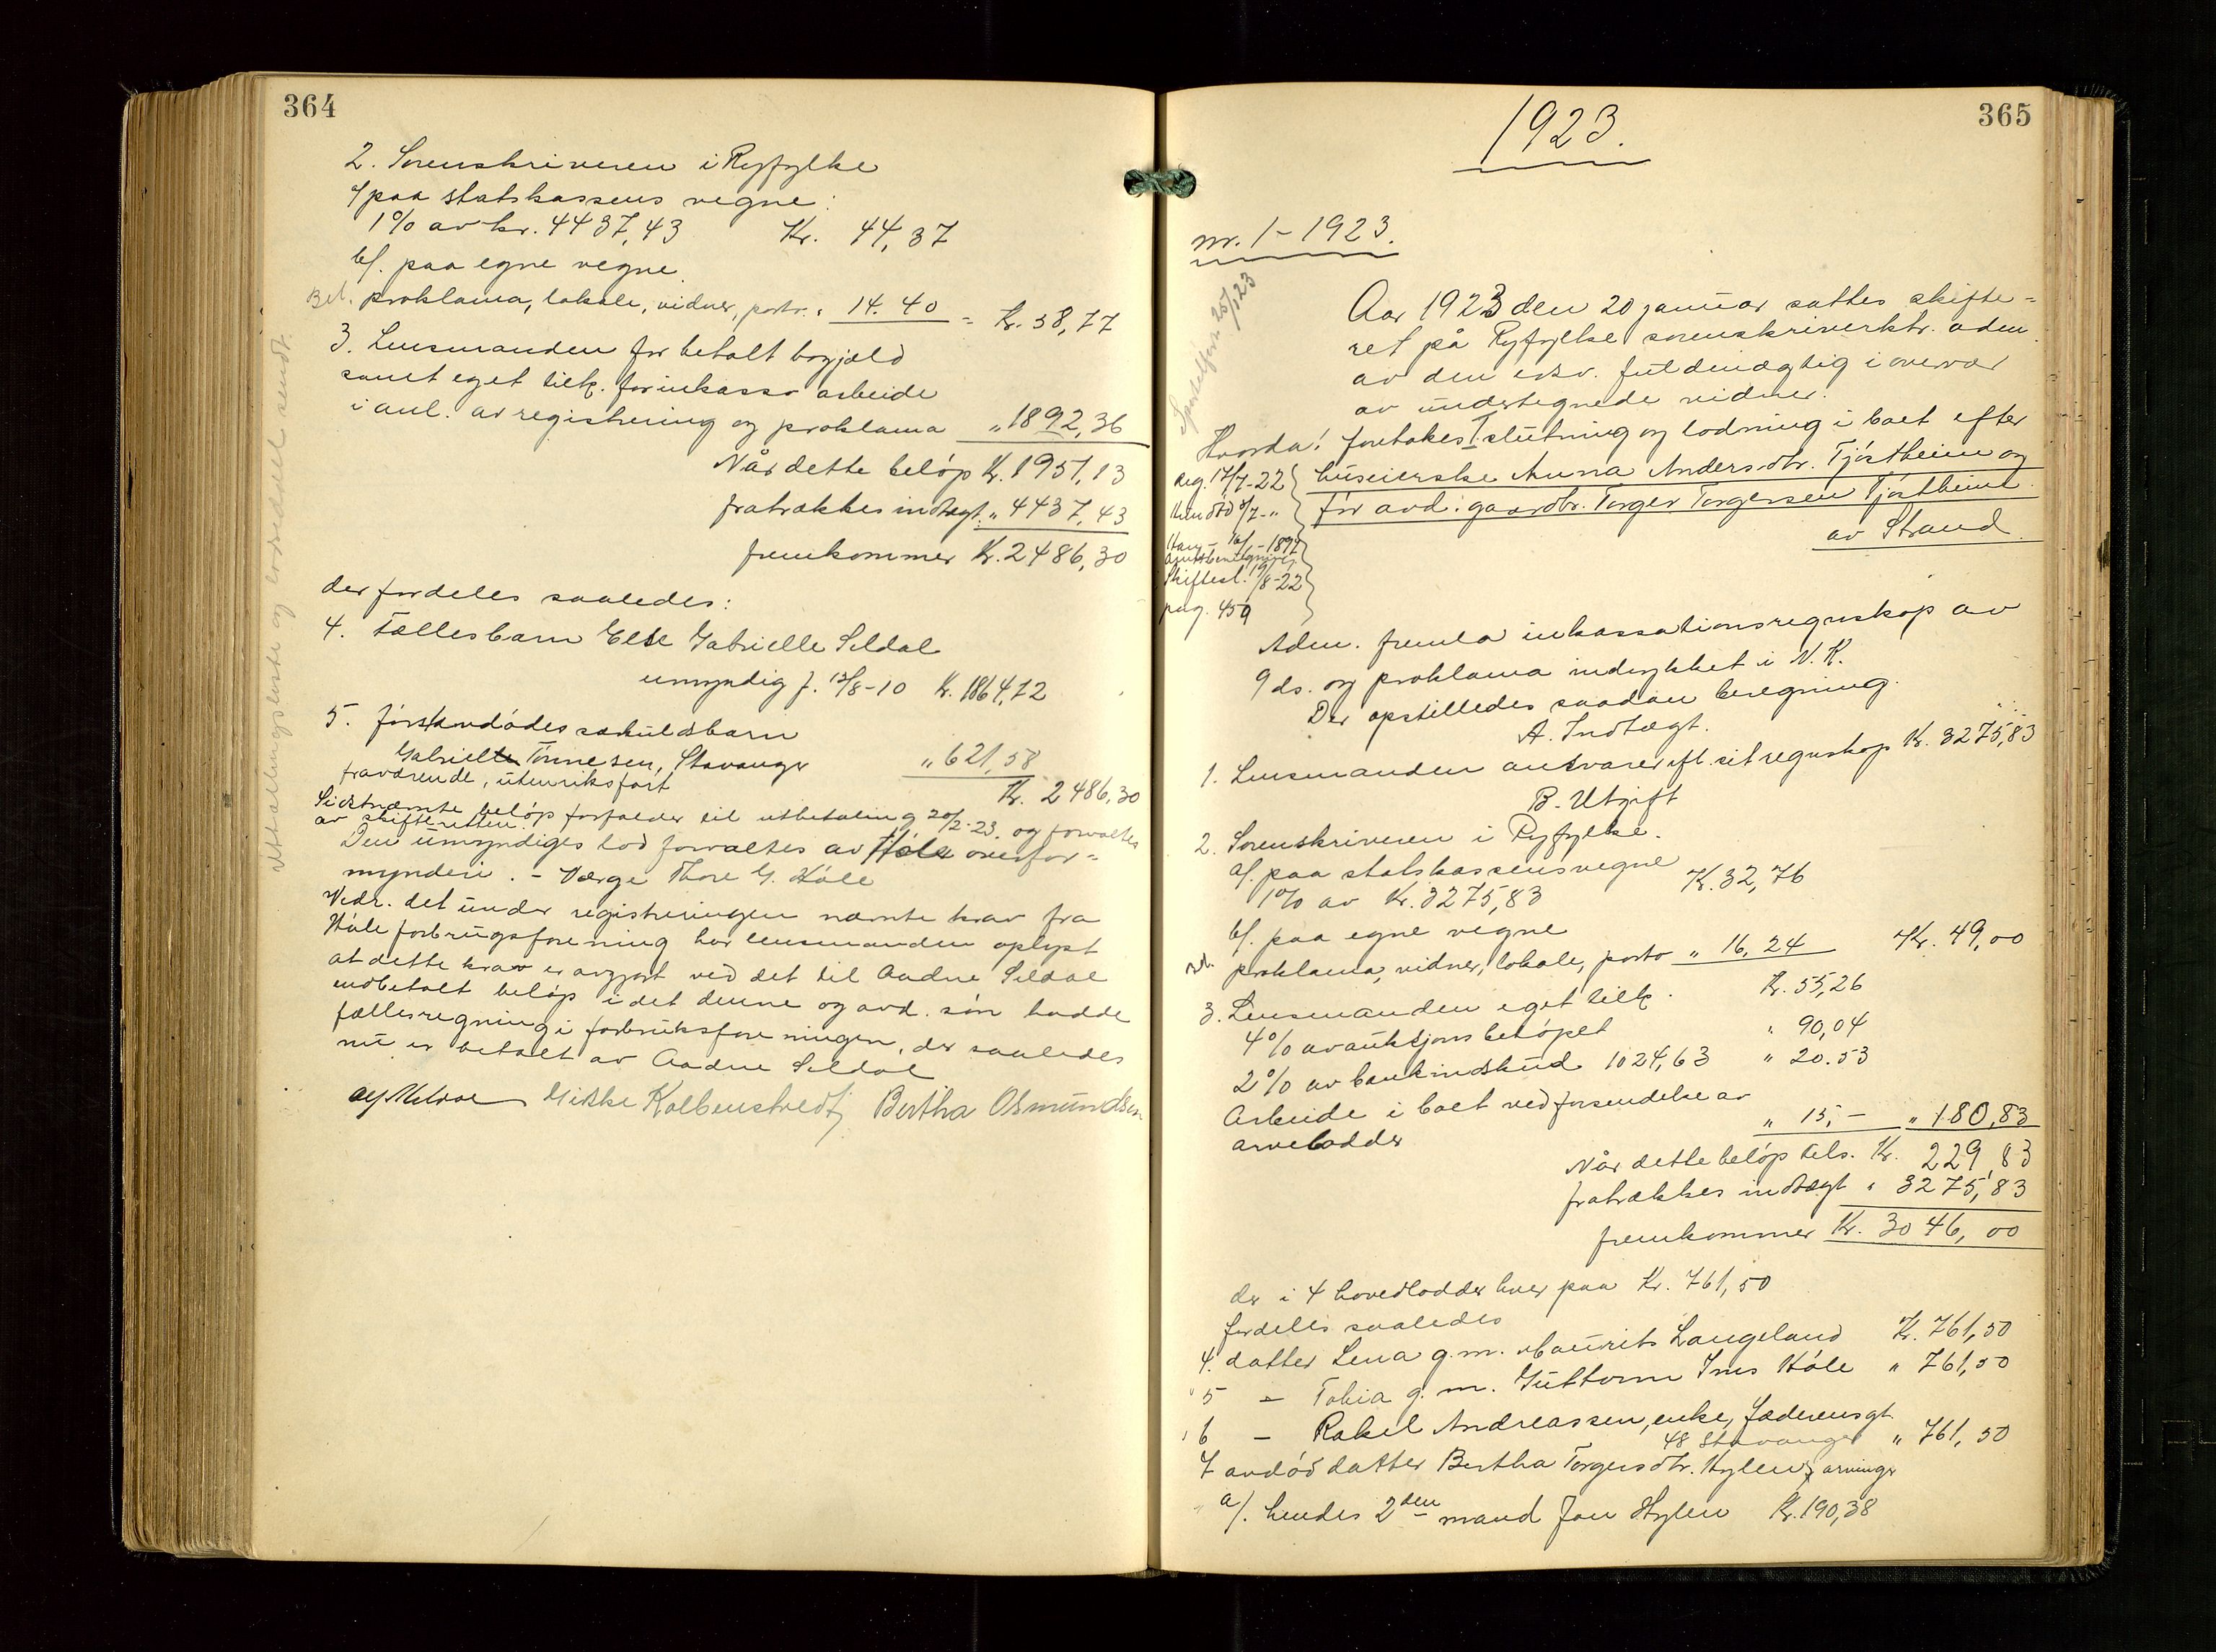 364
2. Sorenskriveren i Ryfylke
a/ paa statskassens vegne:
1% av kr. 4437,43 Kr. 44,37
b/. paa egne vegne
Bet. proklama, lokale, vidner, porto. " 14.40 = Kr. 58,77
3. Lensmanden for betalt bogjæld
samt eget tilk. for inkasso arbeide
i anl. av registrering og proklama " 1892,36
Når dette beløp Kr. 1951,13
fratrækkes indtægt. " 4437,43
fremkommer Kr. 2486,30
der fordeles saaledes:
4. Fællesbarn Else Gabrielle Seldal
umyndig f. 12/8-10 Kr. 1864,72
5. førstavdødes særkuldsbarn
Gabriel Tønnesen, Stavanger " 621,58
fraværende, utenriksfart Kr. 2486,30
Sidstnævnte beløp forfalder til utbetaling 20/2-23. og forvaltes
av skifteretten.
Den umyndiges lod forvaltes av Høle overfor-
mynderi. - Værge Thore G. Høle
Vedr. det under registreringen nævnte krav fra
Høle forbrugsforening har lensmanden oplyst
at dette krav er avgjort ved det til Aadne Seldal
endbetalt beløp idet denne og avd. søn hadde
fællesregning i forbruksforeningen, der saaledes
nu er betalt av Aadne Seldal
Giske Kolbenstvedt Bertha Osmundsen.
Utbetalingsliste og lodseddel sendt.
365
1923.
nr. 1-1923.
Aar 1923 den 20 januar sattes skifte-
ret på Ryfylke sorenskriverktr. adm.
av den edsv. fuldmægtig i overvær
av undertegnede vidner.
Hvorda! foretokes slutning og lodning i boet efter
huseierske Anna Andersdtr. Tjøstheim og
før avd. gaardbr. Torger Torgersen Tjøstheim
av Strand.
Reg. 17/7-22
Skiftesl. 19/8-22
pag. 459
Adm. fremla inkassationsregnskap av
9 ds. og proklama indrykket i N. K.
Der opstilledes saadan beregning.
A. Indtægt.
1. Lensmanden ansvarer eft. sit regnskap Kr. 3275,83
B. Utgift
2. Sorenskriveren i Ryfylke.
a/. paa statskassens vegne
1% av Kr. 3275,83 Kr. 32,76
b/. paa egne vegne
Bet. proklama, vidner, lokale, porto " 16,24 Kr. 49,00
3. Lensmanden eget tilk. Kr. 55,26
4% av auktjonsbeløpet " 90,04
2% av bankindskud 1024,63 " 20.53
Arbeide i boet ved forsendelse av
arvelodder " 15,- " 180,83
Når dette beløp tils. Kr. 229,83
fratrækkes indtægt " 3275,83
fremkommer Kr. 3046,00
der i 4 hovedlodder hver paa Kr. 761,50
fordeles saaledes
4. datter Lena g.m. Maurits Langeland Kr. 761,50
5 - Tobia g. m. Guttorm Ims Høle " 761,50
6 - Rakel Andreassen, enke, Jæderensgt.
48 Stavanger " 761,50
7 avdød datter Bertha Torgersdtr. Hylens arvinger
a/. hendes 2den mand Jon Hylen Kr. 190,38